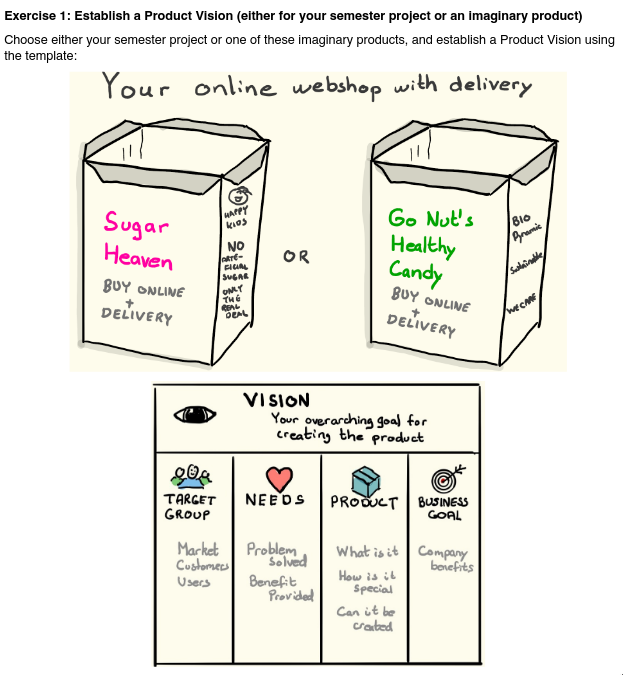 Exercise 1: Establish a Product Vision (either for your semester project or an imaginary product)
Choose either your semester project or one of these imaginary products, and establish a Product Vision using
the template:
Your online webshop with delivery
Sugar
Heaven
BUY ONLINE
+
DELIVERY
HAPPY
KIDS
NO
ARTE-
FICIAL
SUGAR
ONLY
THE
REAL
DEAL
OR
Go Nut's
Healthy
Candy
BUY ONLINE
+
DELIVERY
BIO
Dynamic
Sustainable
WE CARE
VISION
Your overarching goal for
creating the product
TARGET
GROUP
Market
Customers
Users
NEEDS
Problem
Solved
Benefit
Provided
PRODUCT
What is it
How is it
special
Can it be
created
BUSINESS
GOAL
Company
benefits